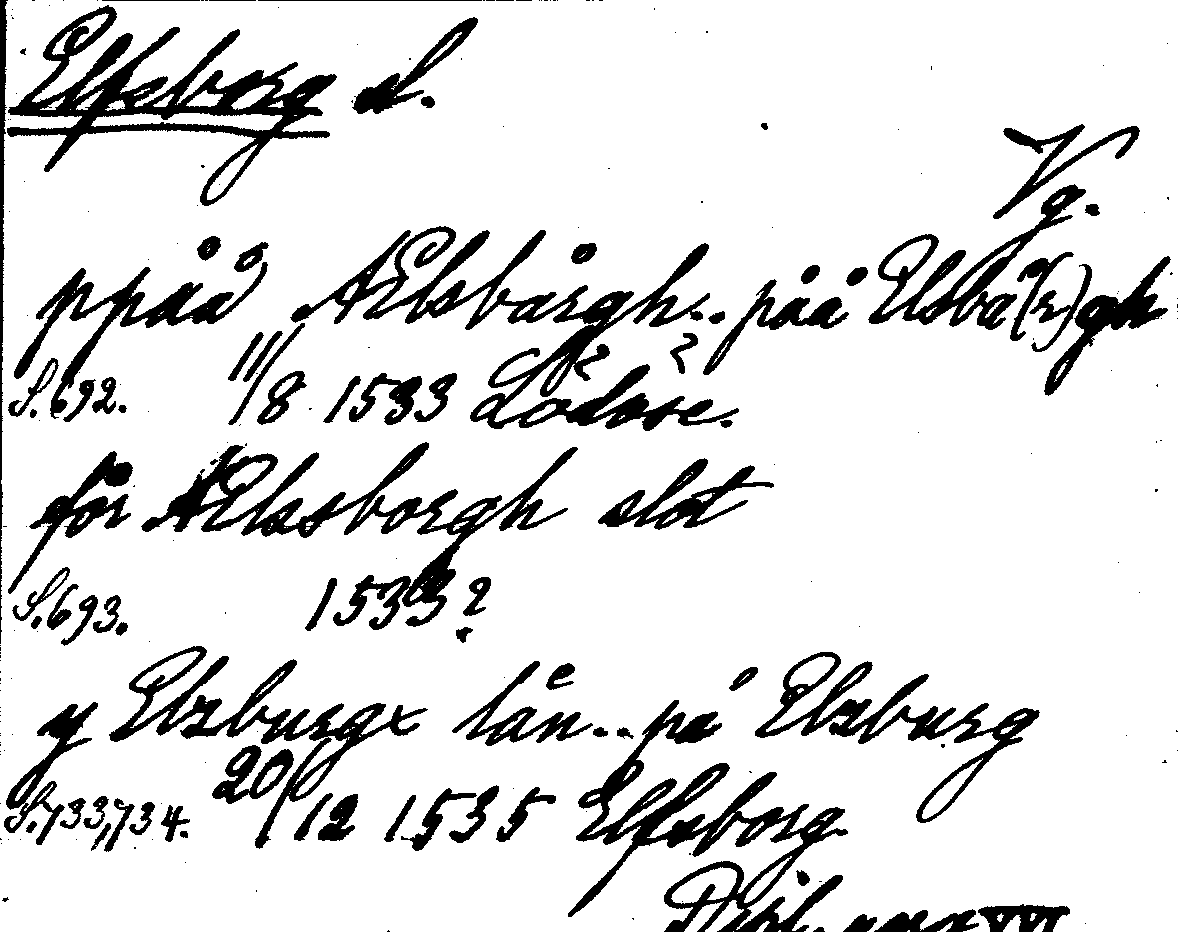 Elfsborg sl.
Vg.
ppåå AElsbårgh.. påå Elsbå(r)gh
S.692. 11/8 1533 Lödöse.
för AElssborgh slot
S.693. 1533?
y Elzburgx län.. på Elzburg
S.733,734. 20/12 1535 Elfsborg.
Dipl. XVI